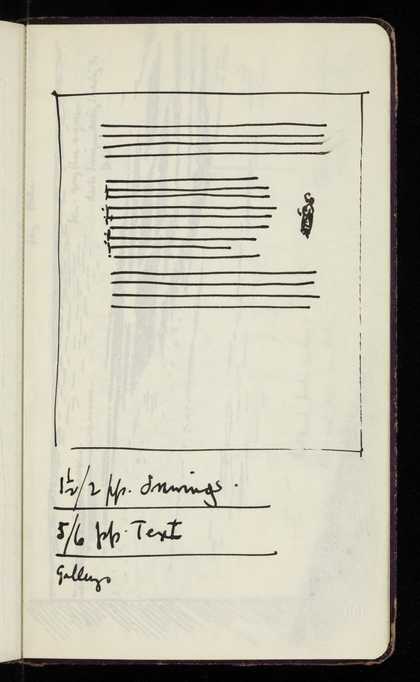 1½/2 pp. drawings.
5/6 pp. Text
Galleys